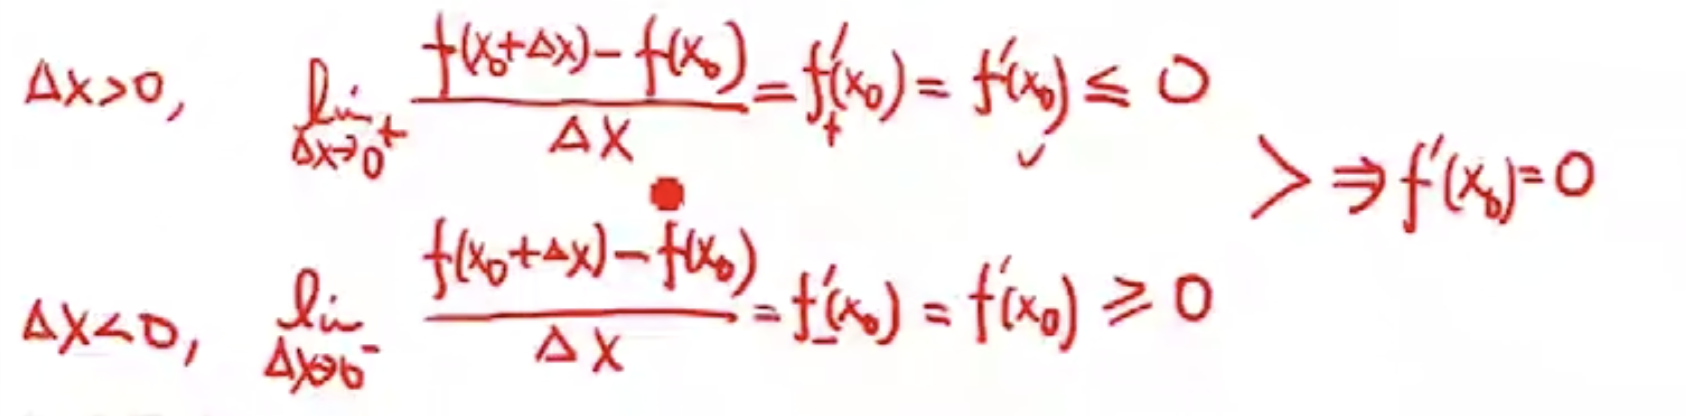 Δx>0, lim Δx→0⁺ (f(x₀+Δx)−f(x₀))/Δx = f₊′(x₀) = f′(x₀) ≤ 0
⇒ f′(x₀)=0
Δx<0, lim Δx→0⁻ (f(x₀+Δx)−f(x₀))/Δx = f₋′(x₀) = f′(x₀) ≥ 0